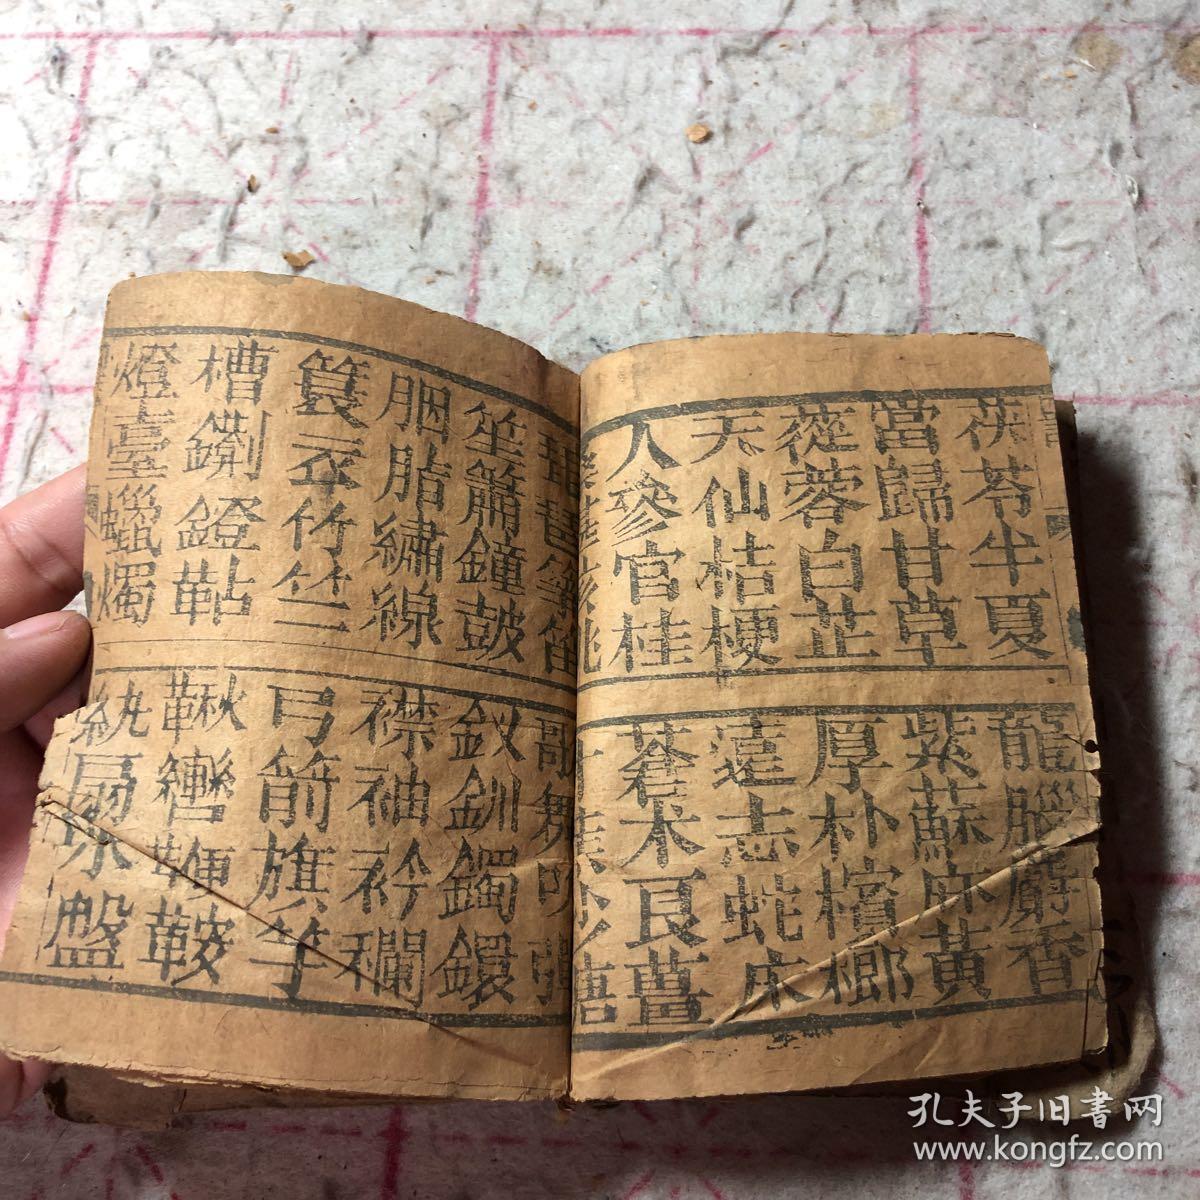 茯苓半夏
當歸甘草
蓯蓉白芷
天仙桔梗
人參官桂
龍腦麝香
紫蘇麻黃
厚朴檳榔
遠志蛇床
蒼术良薑
琵琶箏笛
笙簫鐘鼓
胭脂繡線
簑衣竹竺
槽鍘鐙鞊
燈臺蠟燭
歌舞吹彈
釵釧鐲鐶
襟袖衿襴
弓箭旗竿
鞦轡鞭鞍
紈扇氷盤
孔夫子旧書网
www.kongfz.com